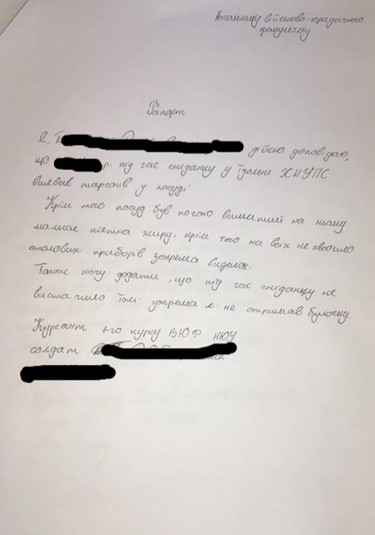 Начальнику військово-юридичного
факультету
Рапорт
Я, дійсно доповідаю,
що р. під час сніданку у їдальні ХНУПС
виявив таргана у посуді.
Крім того посуд був погано вимитий на ньому
малися плями жиру, крім того на всіх не хватило
столових приборів зокрема виделок.
Також хочу додати, що під час сніданку не
вистачило їжі зокрема я не отримав булочку.
Курсант 1-го курсу ВЮФ НЮУ
солдат